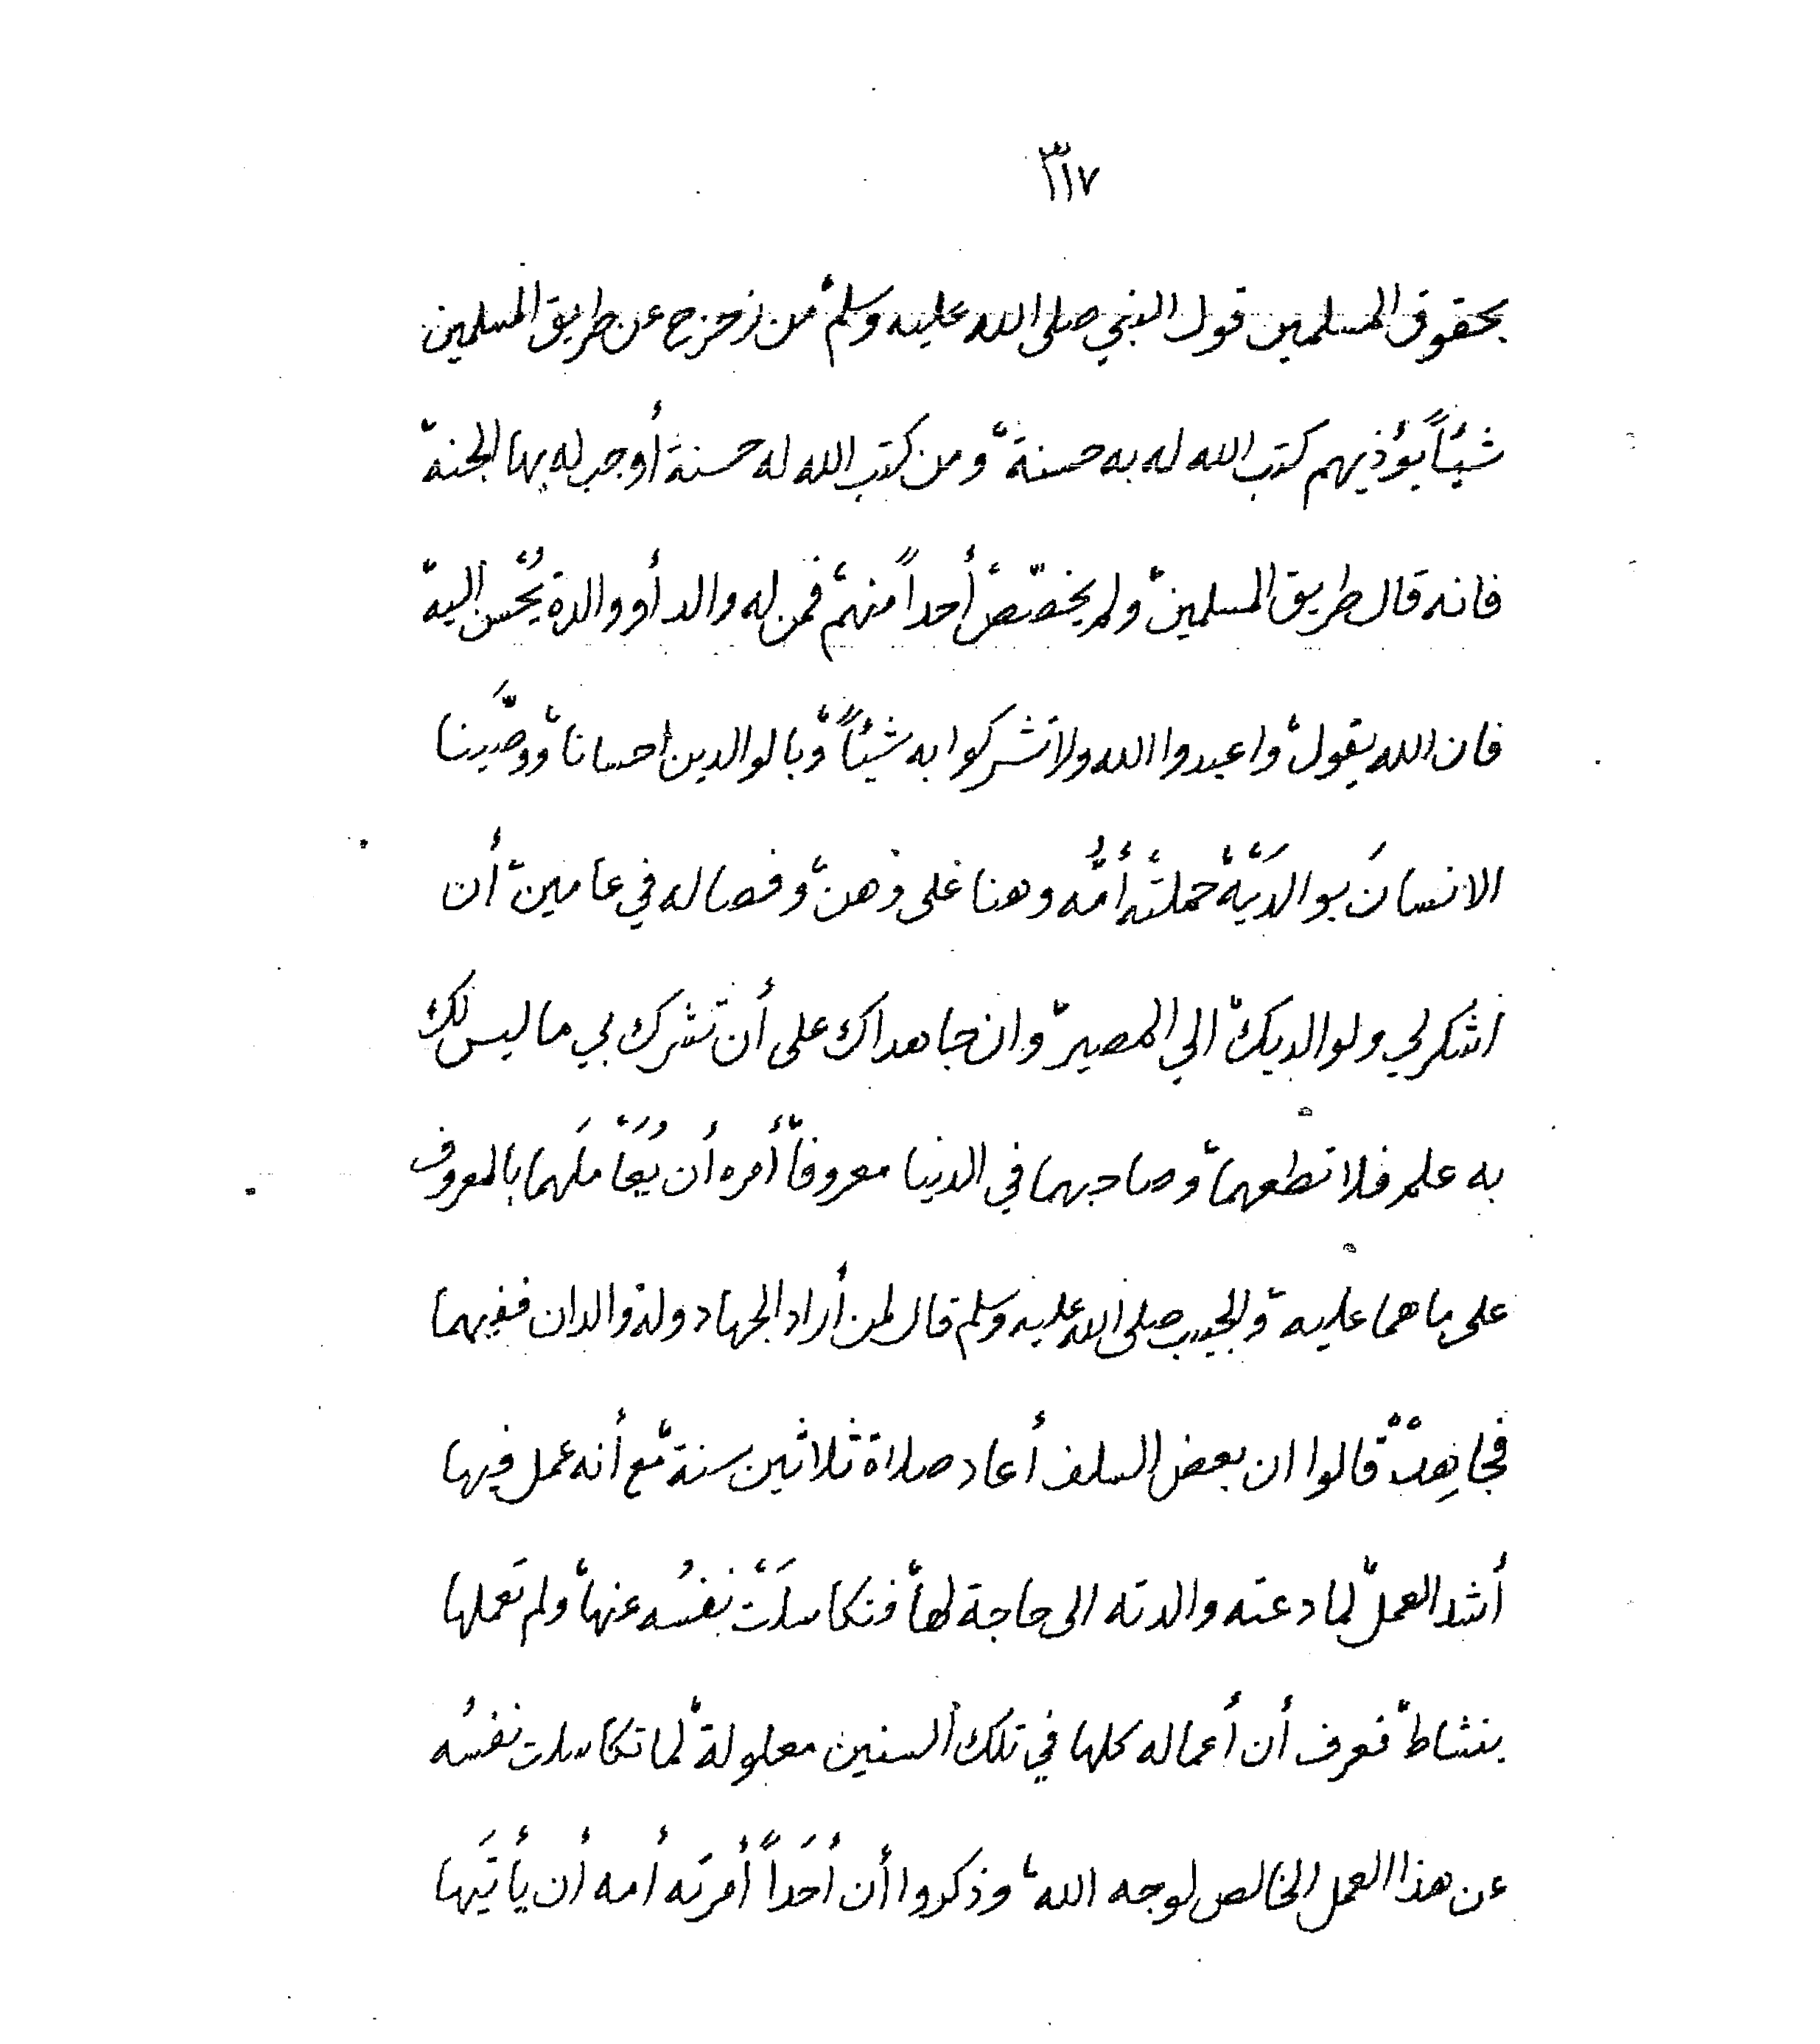 ٣١٧
بحقوق المسلمين قول النبي صلى الله عليه وسلم، من زحزح عن طريق المسلمين
شيئاً يؤذيهم كتب الله له به حسنة، ومن كتب الله له حسنة أوجب له بها الجنة،
فانه قال طريق المسلمين، ولم يخصّص أحداً منهم، فمن له والد أو والدة يُحْسن اليه،
فان الله يقول، واعبدوا الله ولا تشركوا به شيئاً، وبالوالدين احسانا، ووصَّينا
الانسانَ بوالدَيَهْ حملتْه أمُّه وهنا على وهن، وفصاله في عامين، أن
اشكر لي ولوالديك، الي المصير، وان جاهداك على أن تشرك بي ما ليس لك
به علم فلا تطعهما، وصاحبهما في الدنيا معروفا، أمره أن يُعَامَلَهما بالمعروف
على ما هما عليه، والحبيب صلى الله عليه وسلم قال لمن أراد الجهاد وله والدان ففيهما
فجاهِدْ، قالوا ان بعض السلف أعاد صلاة ثلاثين سنة، مع أنه عمل فيها
أشد العمل، لما دعته والدته الى حاجة لها، فتكاسلَتْ نفسُه عنها، ولم تَعملها
بنشاط، فعرف أن أعماله كلها في تلك السنين معلولة، لما تكاسلت نفسُه
عن هذا العمل الخالص لوجه الله، وذكروا أن أحَداً أمرَته أمه أن يأتيَها